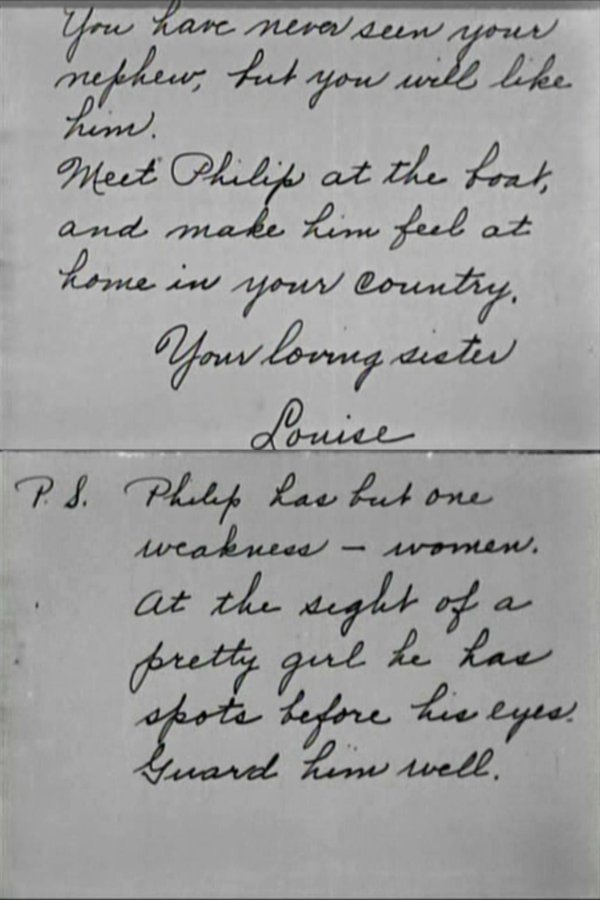 You have never seen your
nephew, but you will like
him.
Meet Philip at the boat,
and make him feel at
home in your country.
Your loving sister
Louise
P.S. Philip has but one
weakness — women.
At the sight of a
pretty girl he has
spots before his eyes.
Guard him well.